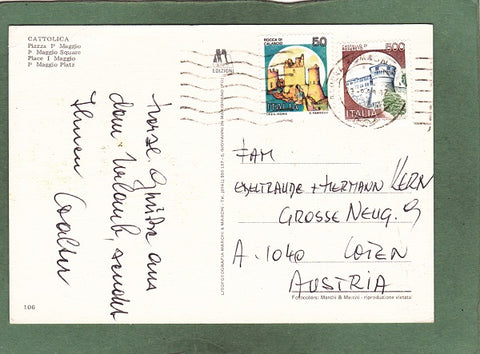 CATTOLICA
Piazza I° Maggio
I° Maggio Square
Place I Maggio
I° Maggio Platz
EDIZIONI
ROCCA DI
CALASCIO
50
ITALIA
500
ITALIA
Grüße aus
dem Urlaub, sendet
Ihnen
Walter
FAM.
EDELTRAUDE + HERMANN KERN
GROSSE NEUG. 9
A. 1040 WIEN
AUSTRIA
106
Fotocolors: Marchi & Marsili - riproduzione vietata